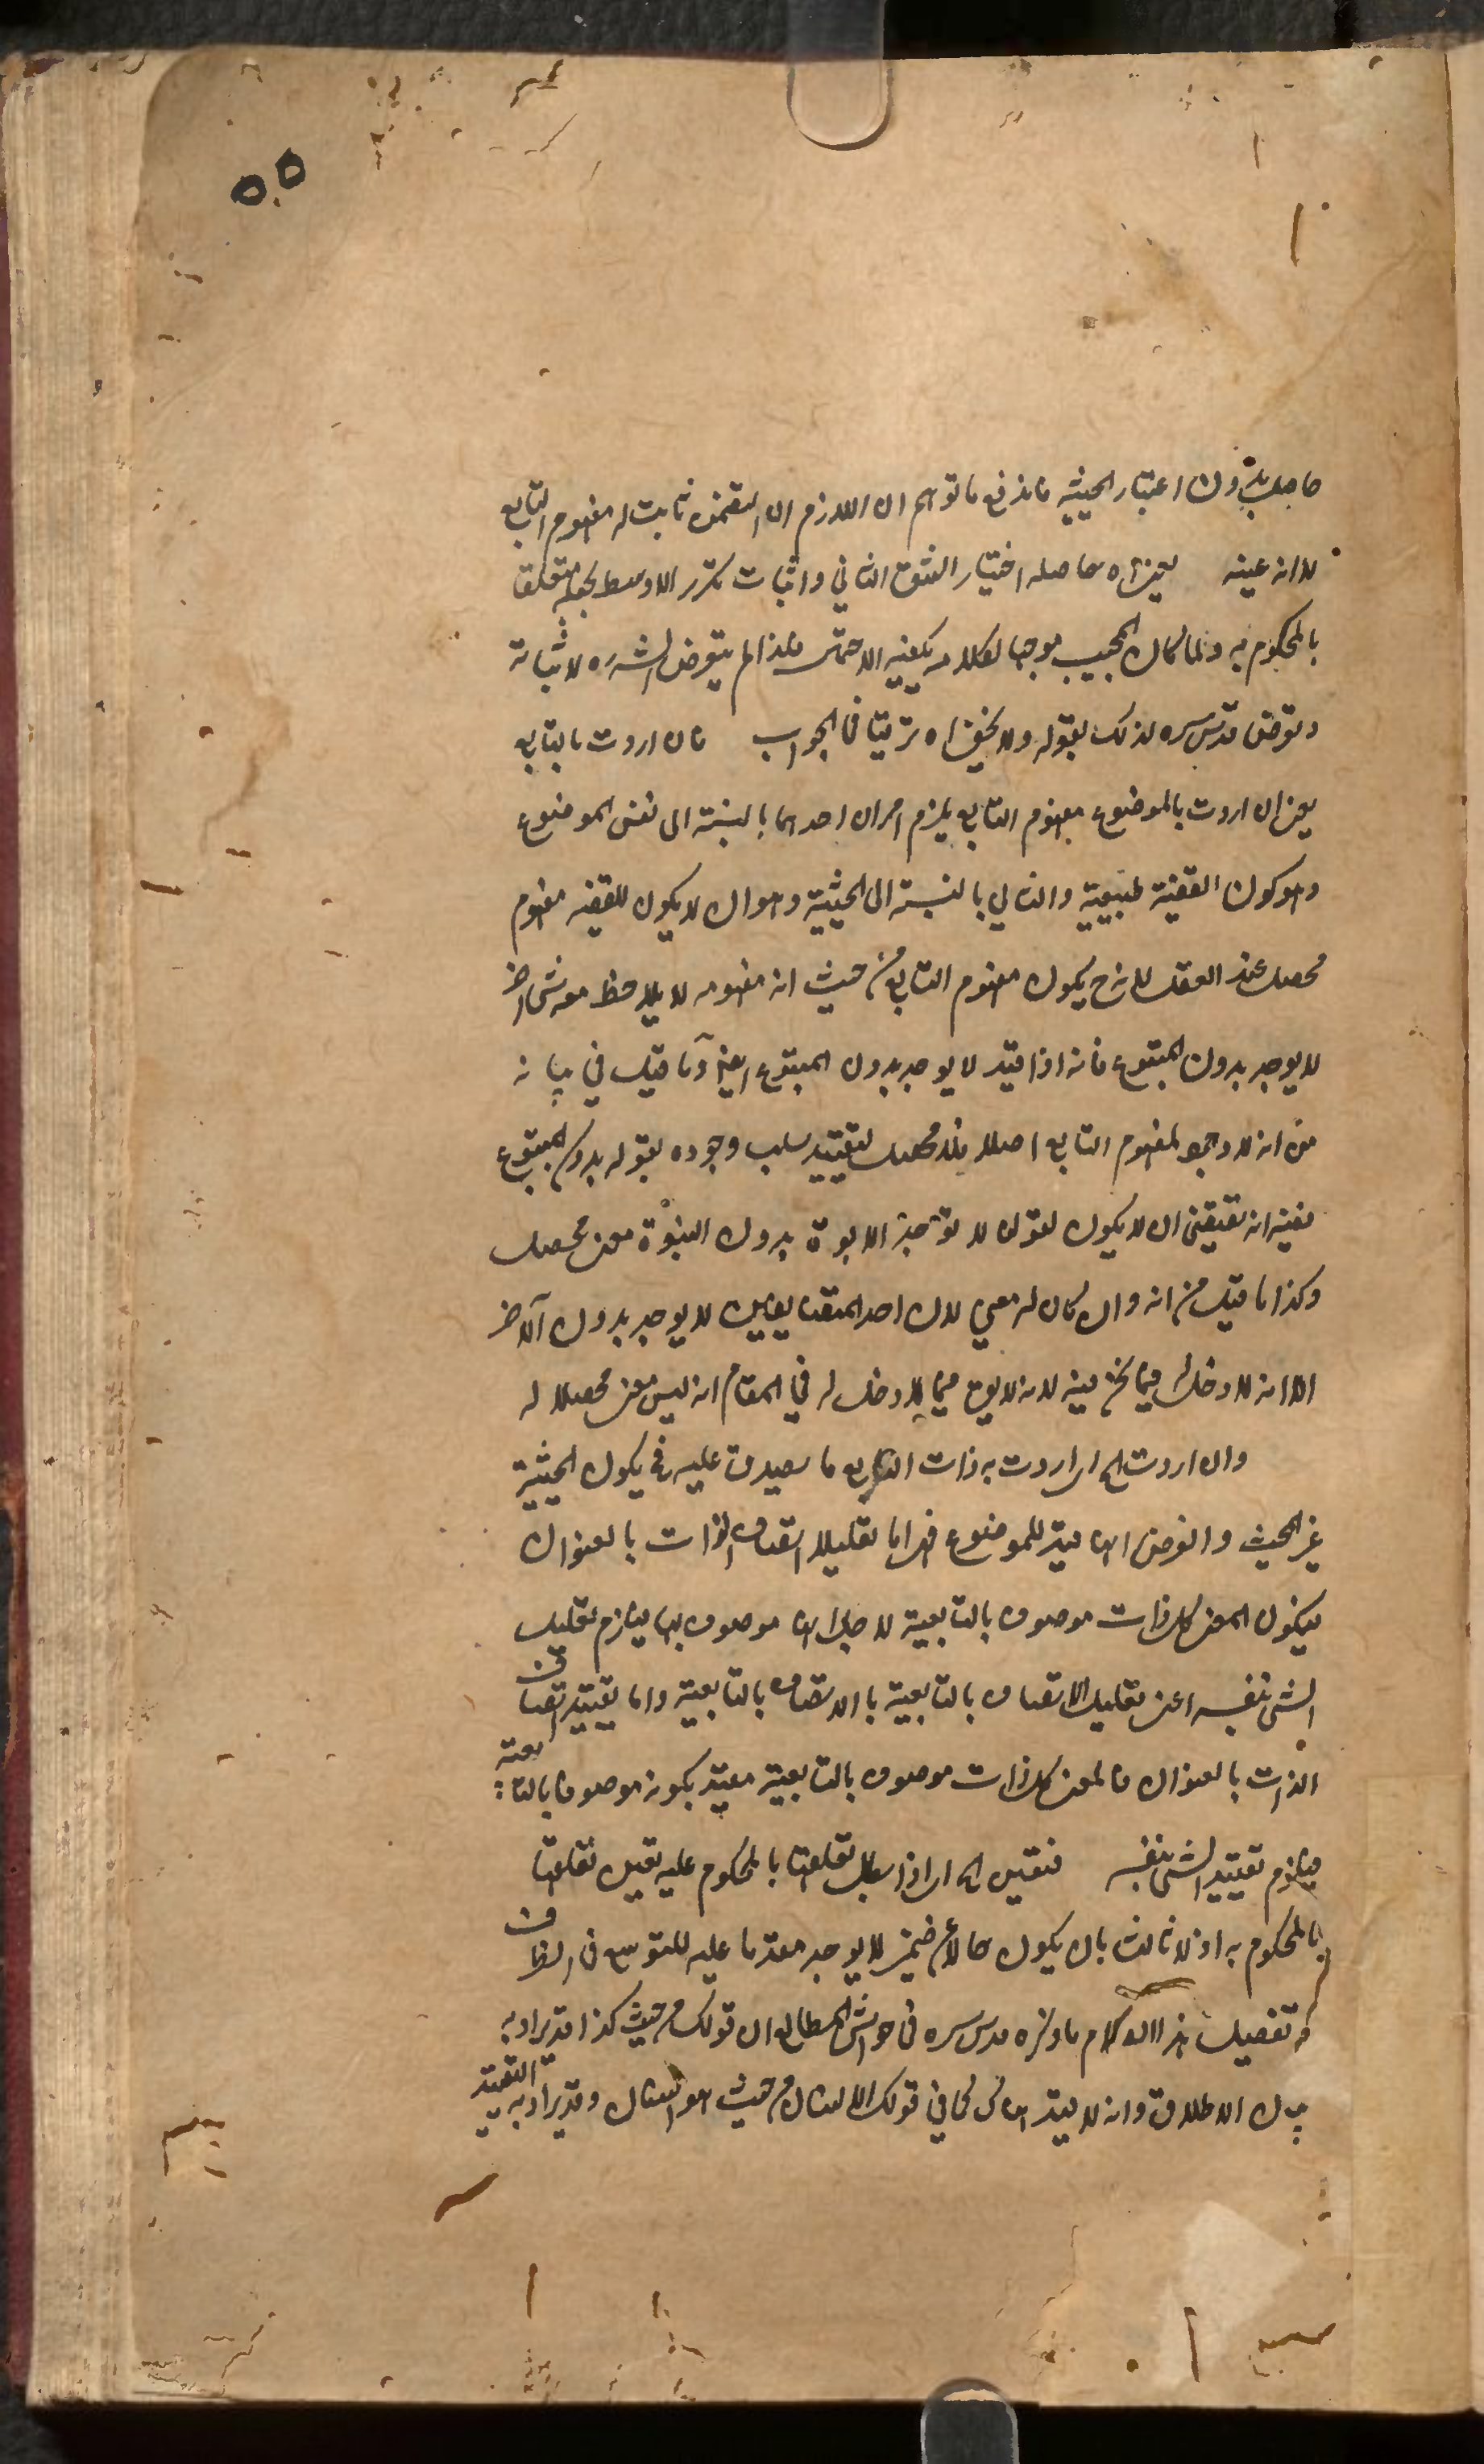 ٥٥
حاصل بدون اعتبار الحيثية فاندفع ما توهم ان اللازم ان التقدم ثابت له مفهوم التابع
لا انه عينه يعنى اه حاصله اختيار الشق الثاني واثبات تكرر الاوسط بجعله متعلقا
بالمحكوم به ولما كان المجيب موجها لكلامه يكفيه الاحتمال فلذا لم يتعرض الشره لاثباته
وتعرض قدس سره لذلك بقوله ولا يخفى اه ترقيا فى الجواب فان اردت بالتابع
يعنى ان اردت بالموضوع مفهوم التابع يلزم امران احدهما بالنسبة الى نفس الموضوع
وهو كون القضية طبيعية والثاني بالنسبة الى الحيثية وهو ان لا يكون للقضيه مفهوم
محصل عند العقل لانه ح يكون مفهوم التابع من حيث انه مفهومه لا يلاحظ معه شئ اخر
لا يوجد بدون المتبوع فانه اذا قيد لا يوجد بدون المتبوع وما قيل في بيانه
من انه لا وجود لمفهوم التابع اصلا فلا محصل لتقييد سلب وجوده بقوله بدون المتبوع
ففيه انه يقتضى ان لا يكون لقولنا لا توجد الابوة بدون البنوة معنى محصل
وكذا ما قيل من انه وان كان له معنى لان احد المتضايفين لا يوجد بدون الآخر
الا انه لا دخل له فيما نحن فيه لانه لا يق فيما لا دخل له في المقام انه ليس معنى محصلا له
وان اردت الخ اى ان اردت به ذات التابع ما يصدق عليه فح يكون الحيثية
غير المحيث والفرض انها قيد للموضوع فهى اما تعليلا لاتصاف الذات بالعنوان
فيكون المعنى كل ذات موصوف بالتابعية لاجل انها موصوف بها فيلزم تعليل
الشئ بنفسه اعنى تعليل الاتصاف بالتابعية بالاتصاف بالتابعية واما تقييد اتصاف
الذات بالعنوان فالمعنى كل ذات موصوف بالتابعية مقيد بكونه موصوفا بالتابعية
فيلزم تقييد الشئ بنفسه فتعين الخ اى اذا بطل تعلقها بالمحكوم عليه تعين تعلقها
بالمحكوم به اذ لا ثالث بان يكون حالا عن ضمير لا يوجد مقدما عليه للتوسع فى الظرف
و تفصيل هذا الكلام ما ذكره قدس سره فى حواشى المطالع ان قولك من حيث كذا قد يراد به
بيان الاطلاق وانه لا قيد هناك كما في قولك الانسان من حيث هو انسان وقد يراد به التقييد